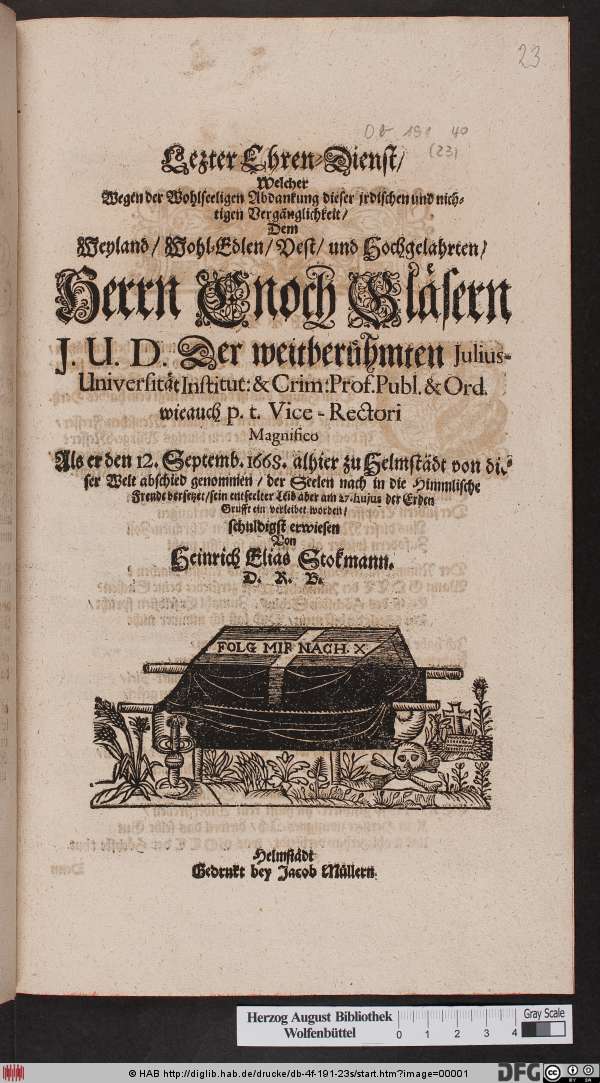 23
Db 191 4o
(23)
Lezter Ehren-Dienst/
Welcher
Wegen der Wohlseeligen Abdankung dieser jrdischen und nich-
tigen Vergänglichkeit/
Dem
Weyland/ Wohl-Edlen/ Vest/ und Hochgelahrten/
Herrn Enoch Gläsern
J. U. D. Der weitberühmten Julius-
Universität Institut: & Crim: Prof. Publ. & Ord.
wie auch p. t. Vice-Rectori
Magnifico
Als er den 12. Septemb. 1668. alhier zu Helmstädt von die-
ser Welt abschied genommen/ der Seelen nach in die Himmlische
Freude versetzet/ sein entseelter Leib aber am 27. hujus der Erden
Grufft ein verleibet worden/
schuldigst erwiesen
Von
Heinrich Elias Stokmann.
D. R. B.
FOLG MIR NACH. X
Helmstädt
Gedrukt bey Jacob Müllern.
Herzog August Bibliothek
Wolfenbüttel
0 1 2 3 4
Gray Scale
© HAB http://diglib.hab.de/drucke/db-4f-191-23s/start.htm?image=00001
DFG